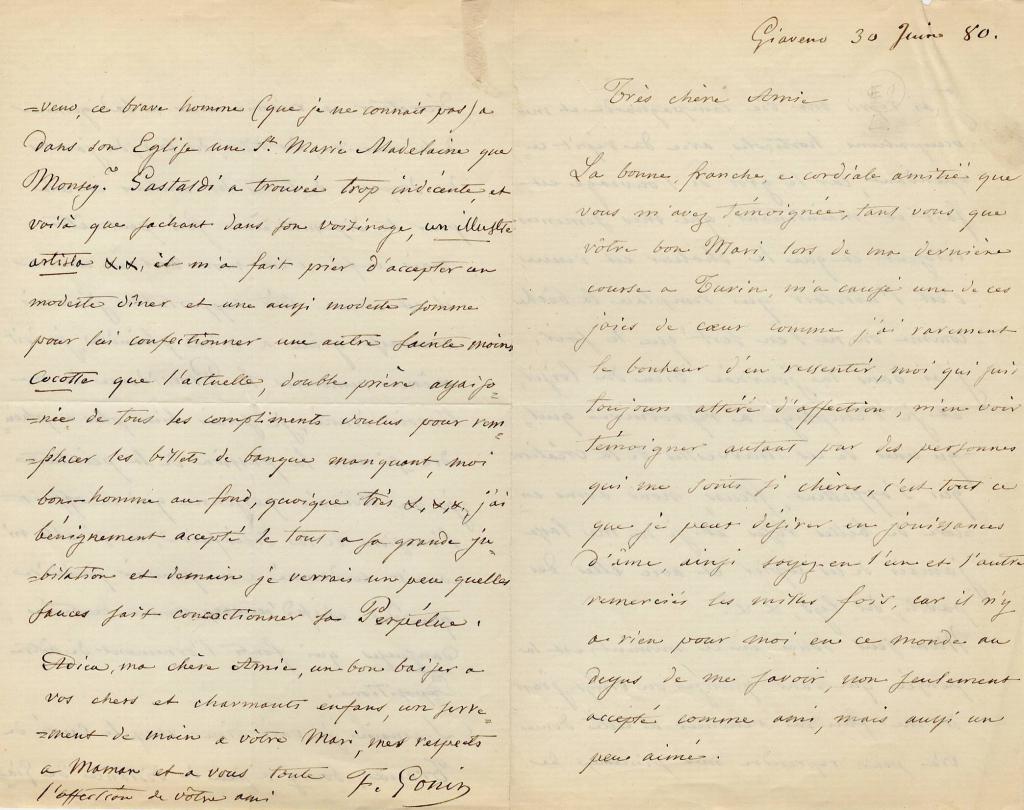 Giaveno 30 Juin 80.
Très chère Amie
La bonne, franche, e cordiale amitié que
vous m'avez témoignée, tant vous que
vôtre bon Mari, lors de ma dernière
course a Turin, m'a causé une de ces
joies de cœur comme j'ai rarement
le bonheur d'en ressentir, moi qui suis
toujours altéré d'affection, m'en voir
témoigner autant par des personnes
qui me sonts si chères, c'est tout ce
que je peux désirer en jouissances
d'âme, ainsi soyez-en l'un et l'autre
remerciés les milles fois, car il n'y
a rien pour moi en ce monde au
dessus de me savoir, non seulement
accepté comme ami, mais aussi un
peu aimé.
=veno, ce brave homme (que je ne connais pas) a
dans son Eglise une St. Marie Madelaine que
Monseg.r Gastaldi a trouvée trop indécente, et
voilà que sachant dans son voisinage, un illustre
artista x.x. il m'a fait prier d'accepter un
modeste dîner et une aussi modeste somme
pour lui confectionner une autre sainte moins
Cocotte que l'actuelle, double prière assaiso=
=née de tous les compliments voulus pour rem=
=placer les billets de banque manquant, moi
bon-homme au fond, quoique très x.x.x. j'ai
bénignement accepté le tout a sa grande ju=
=bilation et demain je verrais un peu quelles
sauces sait concoctionner sa Perpétue.
Adieu, ma chère Amie, un bon baiser a
vos chers et charmants enfans, un serre=
=ment de main a vôtre Mari, mes respects
a Maman et a vous toute
l'affection de vôtre ami
F. Gonin